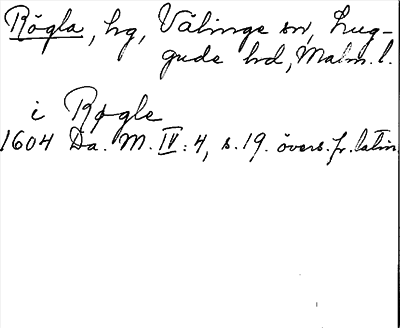 Rögla, hg, Välinge sn, Lug-
gude hd, Malm. l.
i Røgle
1604 Da. M. IV: 4, s. 19. övers. fr. latin